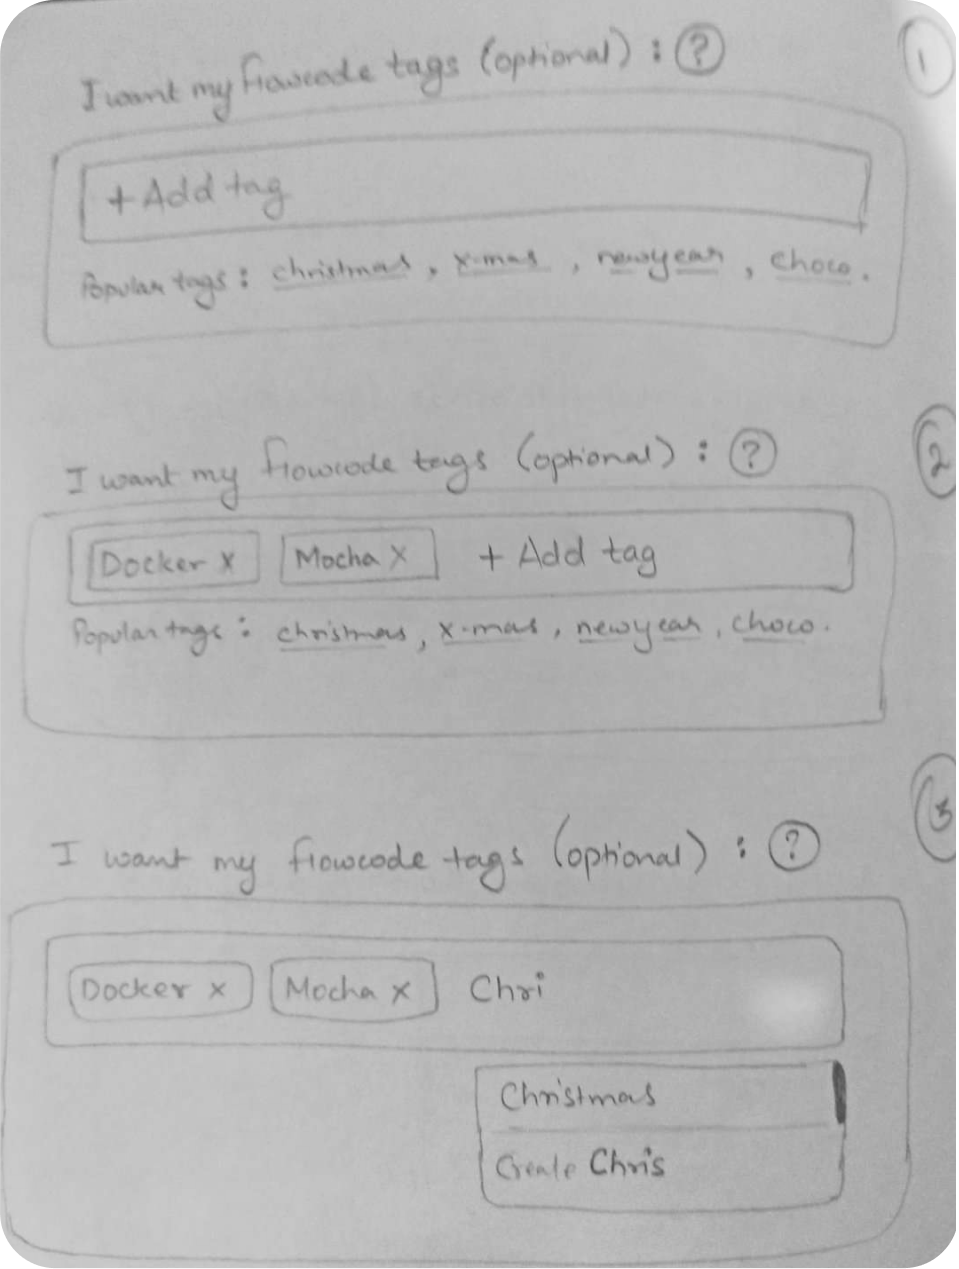 I want my flowcode tags (optional) : ?
1
+ Add tag
Popular tags : christmas, x-mas, newyear, choco.
I want my flowcode tags (optional) : ?
2
Docker x Mocha x + Add tag
Popular tags : christmas, x-mas, newyear, choco.
3
I want my flowcode tags (optional) : ?
Docker x Mocha x Chri
Christmas
Create Chris